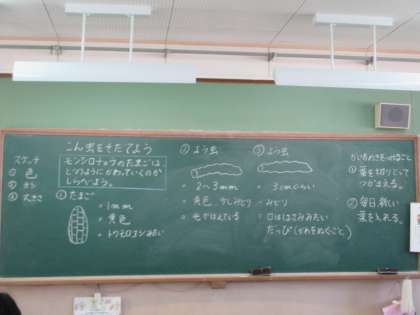 こん虫をそだてよう
モンシロチョウのたまごは
どのようにかわっていくのか
しらべよう。
スケッチ
① 色
② 形
③ 大きさ
① たまご
・1mm
・黄色
・トウモロコシみたい
② よう虫
・2〜3mm
・黄色、少しみどり
・毛がはえている
③ よう虫
・3cmくらい
・みどり
・口ははさみみたい
だっぴ(かわをぬぐこと)
かいかたで気をつけること
① 葉を切りとって
つかまえる。
② 毎日新しい
葉を入れる。